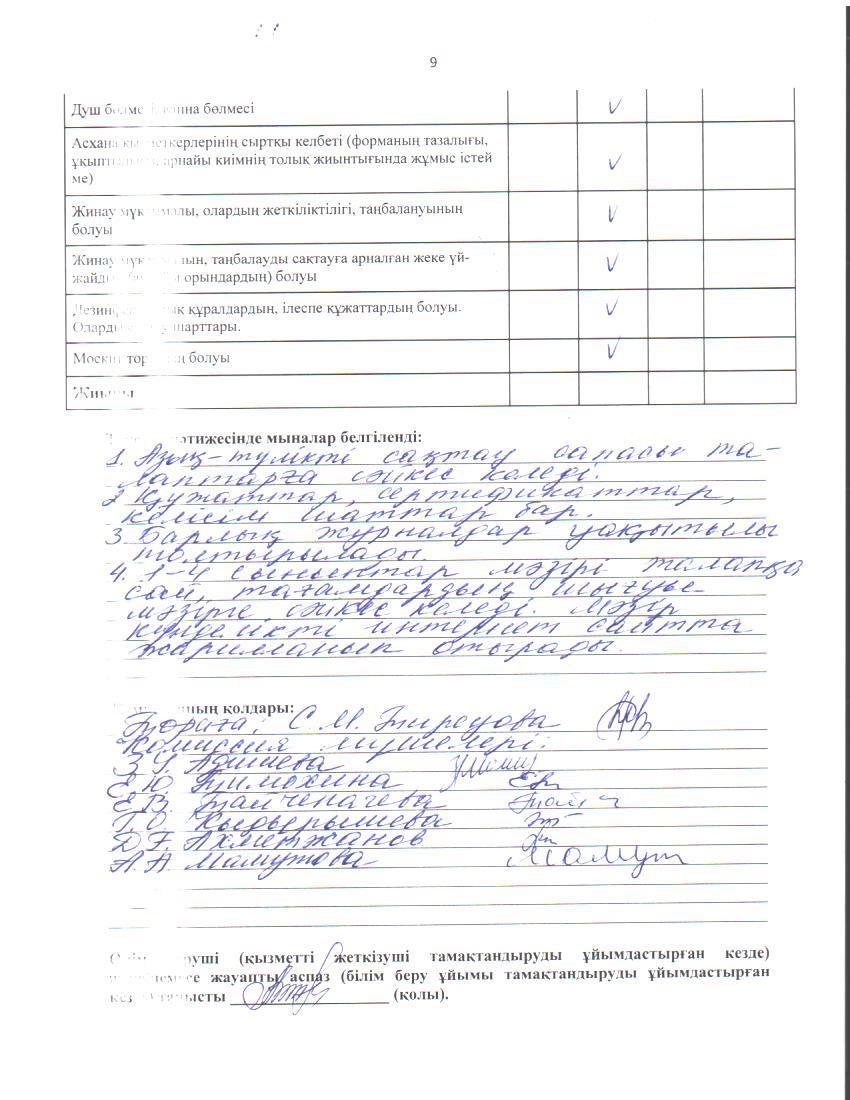 9
Душ бөлмесі, ванна бөлмесі
Асхана қызметкерлерінің сыртқы келбеті (форманың тазалығы,
арнайы киімнің толық жиынтығында жұмыс істей
ме)
Жинау мүкәммалы, олардың жеткіліктілігі, таңбалануының
болуы
Жинау таңбалауды сақтауға арналған жеке үй-
орындардың) болуы
құралдардың, ілеспе құжаттардың болуы.
Оларды шарттары.
болуы
Жиыны
мыналар белгіленді:
1. Азық-түлікті сақтау сапасы та-
лаптарға сәйкес келеді.
2. Құжаттар, сертификаттар,
келісім шаттар бар.
3. Барлық журналдар уақытылы
толтырылады.
4. 1-4 сыныптар мәзірі талапқа
сай, тағамдардың шығуы
мәзірге сәйкес келеді. Мәзір
күнделікті интернет сайтта
жарияланып отырады.
қолдары:
Төраға: С. М.
Комиссия мүшелері:
Е.Ю. Тимохина
Е.В. Тайченачева
Г.О. Кыдырышева
Д.Ғ. Ахметжанов
А.А. Мамутова
(қызметті жеткізуші тамақтандыруды ұйымдастырған кезде)
жауапты аспаз (білім беру ұйымы тамақтандыруды ұйымдастырған
танысты (қолы).